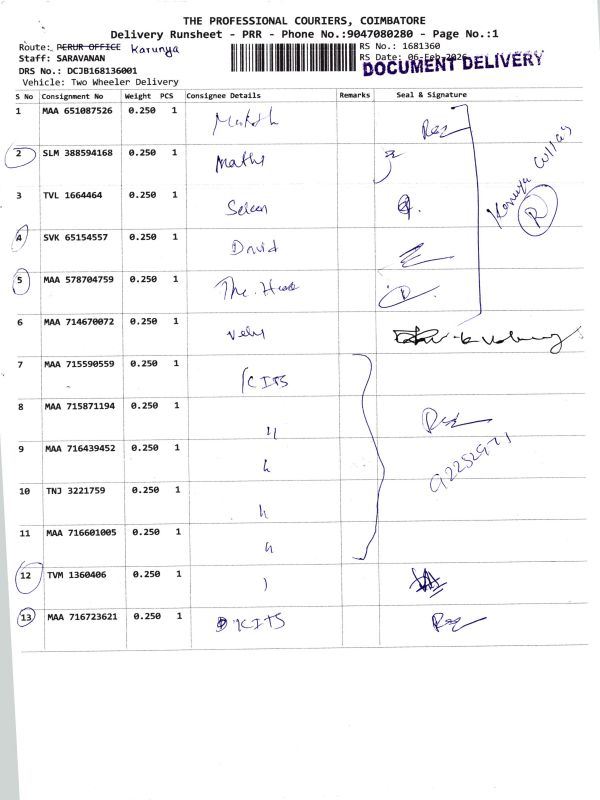 THE PROFESSIONAL COURIERS, COIMBATORE
Delivery Runsheet - PRR - Phone No.:9047080280 - Page No.:1
Route: PERUR OFFICE Karunya
RS No.: 1681360
Staff: SARAVANAN
RS Date: 06-Feb-2026
DOCUMENT DELIVERY
DRS No.: DCJB168136001
Vehicle: Two Wheeler Delivery
S No Consignment No Weight PCS Consignee Details Remarks Seal & Signature
1 MAA 651087526 0.250 1
2 SLM 388594168 0.250 1 Maths
3 TVL 1664464 0.250 1
4 SVK 65154557 0.250 1 David
5 MAA 578704759 0.250 1
6 MAA 714670072 0.250 1
7 MAA 715590559 0.250 1 KITS
8 MAA 715871194 0.250 1 "
9 MAA 716439452 0.250 1
10 TNJ 3221759 0.250 1
11 MAA 716601005 0.250 1
12 TVM 1360406 0.250 1
13 MAA 716723621 0.250 1 KITS
R